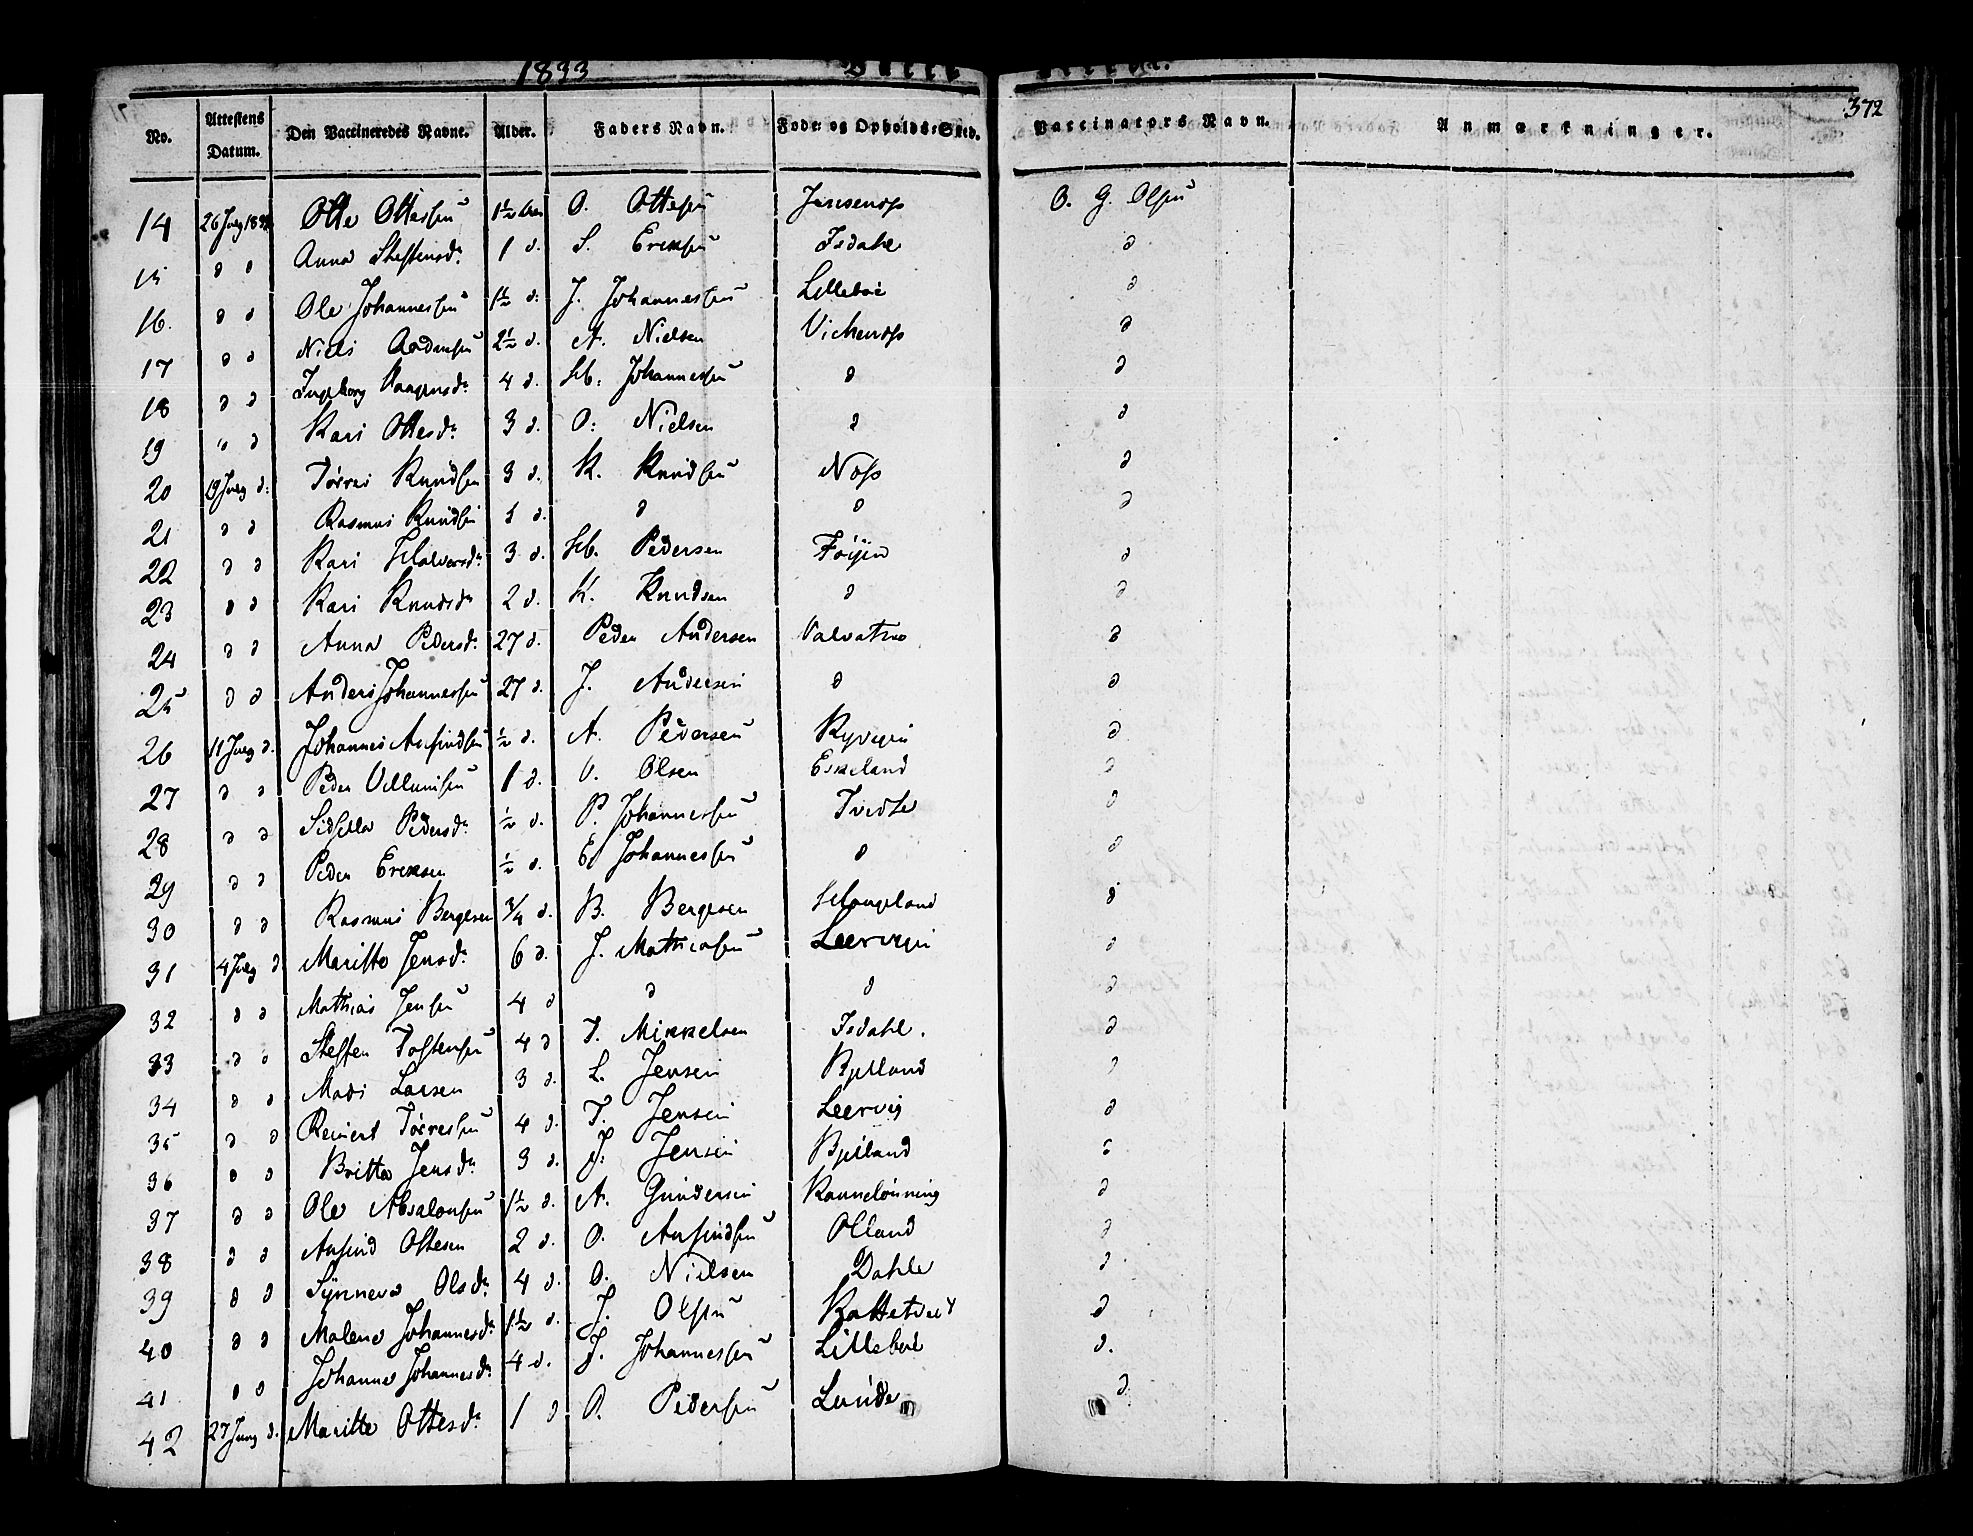 1833
372
No. Attestens Datum. Den Vaccineredes Navne. Alder. Faders Navn. Føde- og Opholds-Sted. Vaccinators Navn. Anmærkninger.
14 26 July Otte Ottessen 1½ O. Ottesen O. G. Olsen
15 d d Anna Steffensd. 1 d. S. Eriksen Isdahl d
16. d d Ole Johannessen 1½ d. J. Johannessen Lillebøe d
17 d d Niels 2½ d. A. Nielsen d
18 d d Ingeborg Haagensd. 4 d. H. Johannessen d d
19 " d Kari Ottesd. 3 d. O. Nielsen d d
20 19 July d. Tørres Knudsen 3 d. K. Knudsen d
21 d d Rasmus Knudsen d. d d d
22 d d Kari Halvorsd. 3 d. H. Pedersen Føyen d
23 d d Kari Knudsd. 2 d. K. Knudsen d d
24 d d Anna Pedersd. 27 d. Peder Andersen Valvatne d
25 d d Anders Johannessen 27 d. J. Andersen d d
26 11 July d. Johannes Ansfindsen ½ d. A. Pedersen d
27 d d Peder Villumsen 1 d. V. Olsen Eskeland d
28 d d Sidsella Pedersd. ½ d. P. Johannessen Tvedte d
29 d d Peder Eriksen ½ d. E. Johannessen d d
30 d d Rasmus Bergesen ¾ d. B. Bergesen Hougeland d
31 4 July d Maritte Jensd. 6 d. J. Mathiasen Leervigen d
32 d d Mathias Jensen 4 d d d d
33 d d Steffen Tostensen 4 d T. Mikkelsen Isdahl. d
34 d d Mads Larsen 3 d. L. Jensen Bjelland d
35 d d Reinert Tørresen 4 d. T. Jensen Leervig d
36 d d Britta Jensd. 3 d. J. Jensen Bjelland d
37 d d Ole Absalonsen 1½ d. A. Gundersen Rommelønning d
38 d d Ansfind Ottesen 2 d. O. Ansfindsen Olland d
39 d d Synneva Olsd. 4 d. O. Nielsen Dahle d.
40 d d Malene Johannesd. 1½ d. J. Olsen d
41 d d Johanne Johannesd. 4 d. J. Johannessen Lillebøe d.
42 27 Juny d. Maritte Ottesd. 1 d O. Pedersen Lunde d